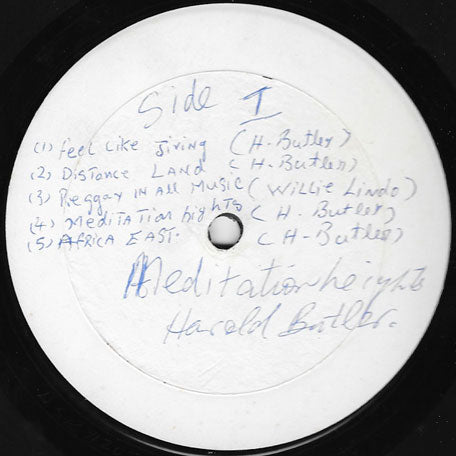 Side I
(1) Feel Like Jiving (H. Butler)
(2) Distance Land (H. Butler)
(3) Reggay in all Music (Willie Lindo)
(4) Meditation hights (H. Butler)
(5) AFRICA EAST. (H-Butler)
Meditation heights
Harold Butler.